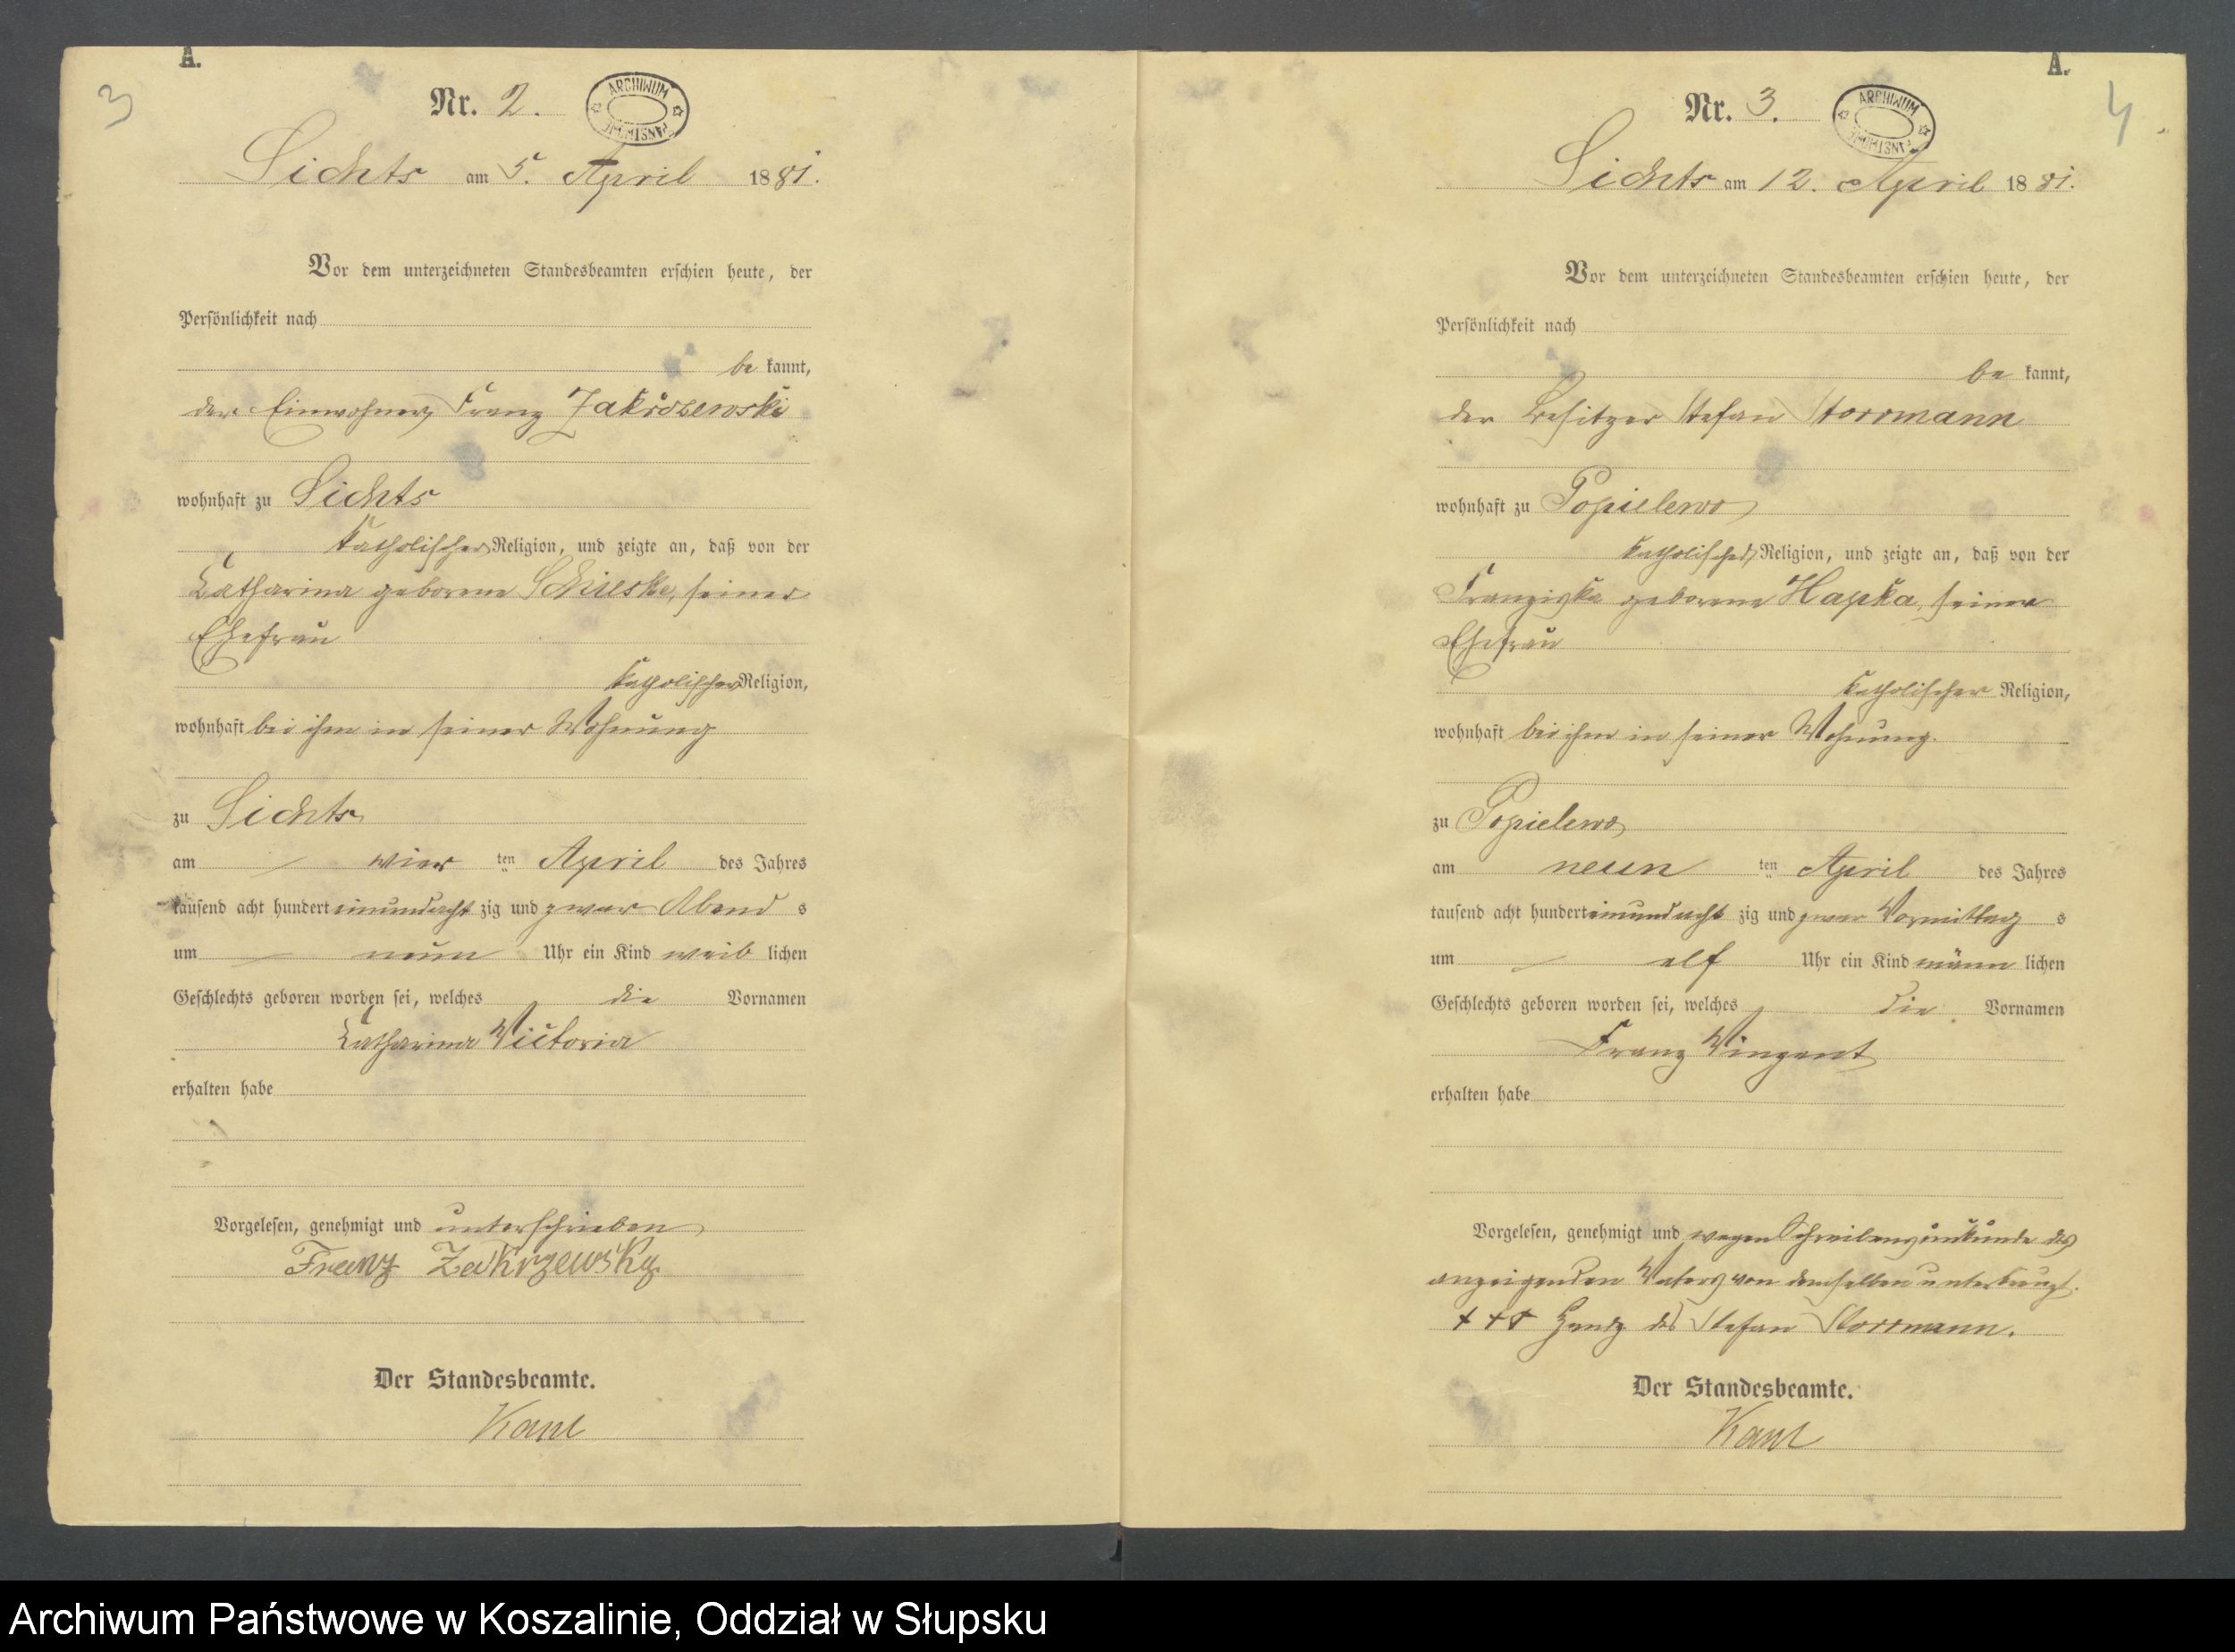 A.
3
Nr. 2.
ARCHIWUM PAŃSTWOWE
Lichts am 5. April 1881.
Vor dem unterzeichneten Standesbeamten erschien heute, der
Persönlichkeit nach
be kannt,
der Einwohner Franz
wohnhaft zu Lichts
katholischer Religion, und zeigte an, daß von der
Catharina geborene seiner
Ehefrau
katholischer Religion,
wohnhaft bei ihm in seiner Wohnung
zu Lichts
am vier ten April des Jahres
tausend acht hundert einundacht zig und zwar Abend s
um neun Uhr ein Kind weib lichen
Geschlechts geboren worden sei, welches die Vornamen
Catharina Victoria
erhalten habe
Vorgelesen, genehmigt und unterschrieben
Franz Zakrzewsky
Der Standesbeamte.
A.
4
Nr. 3.
ARCHIWUM PAŃSTWOWE
Lichts am 12. April 1881.
Vor dem unterzeichneten Standesbeamten erschien heute, der
Persönlichkeit nach
be kannt,
der Besitzer Stefan Storrmann
wohnhaft zu Popielewo
katholischer Religion, und zeigte an, daß von der
Franziska geborene Hapka, seiner
Ehefrau
katholischer Religion,
wohnhaft bei ihm in seiner Wohnung.
zu Popielewo
am neun ten April des Jahres
tausend acht hundert einundacht zig und zwar Vormittag s
um elf Uhr ein Kind männ lichen
Geschlechts geboren worden sei, welches die Vornamen
Franz Vinzent
erhalten habe
Vorgelesen, genehmigt und wegen Schreibensunkunde des
anzeigenden Vaters von demselben unterkreuzt.
+++ Handz. des Stefan Storrmann.
Der Standesbeamte.
Archiwum Państwowe w Koszalinie, Oddział w Słupsku